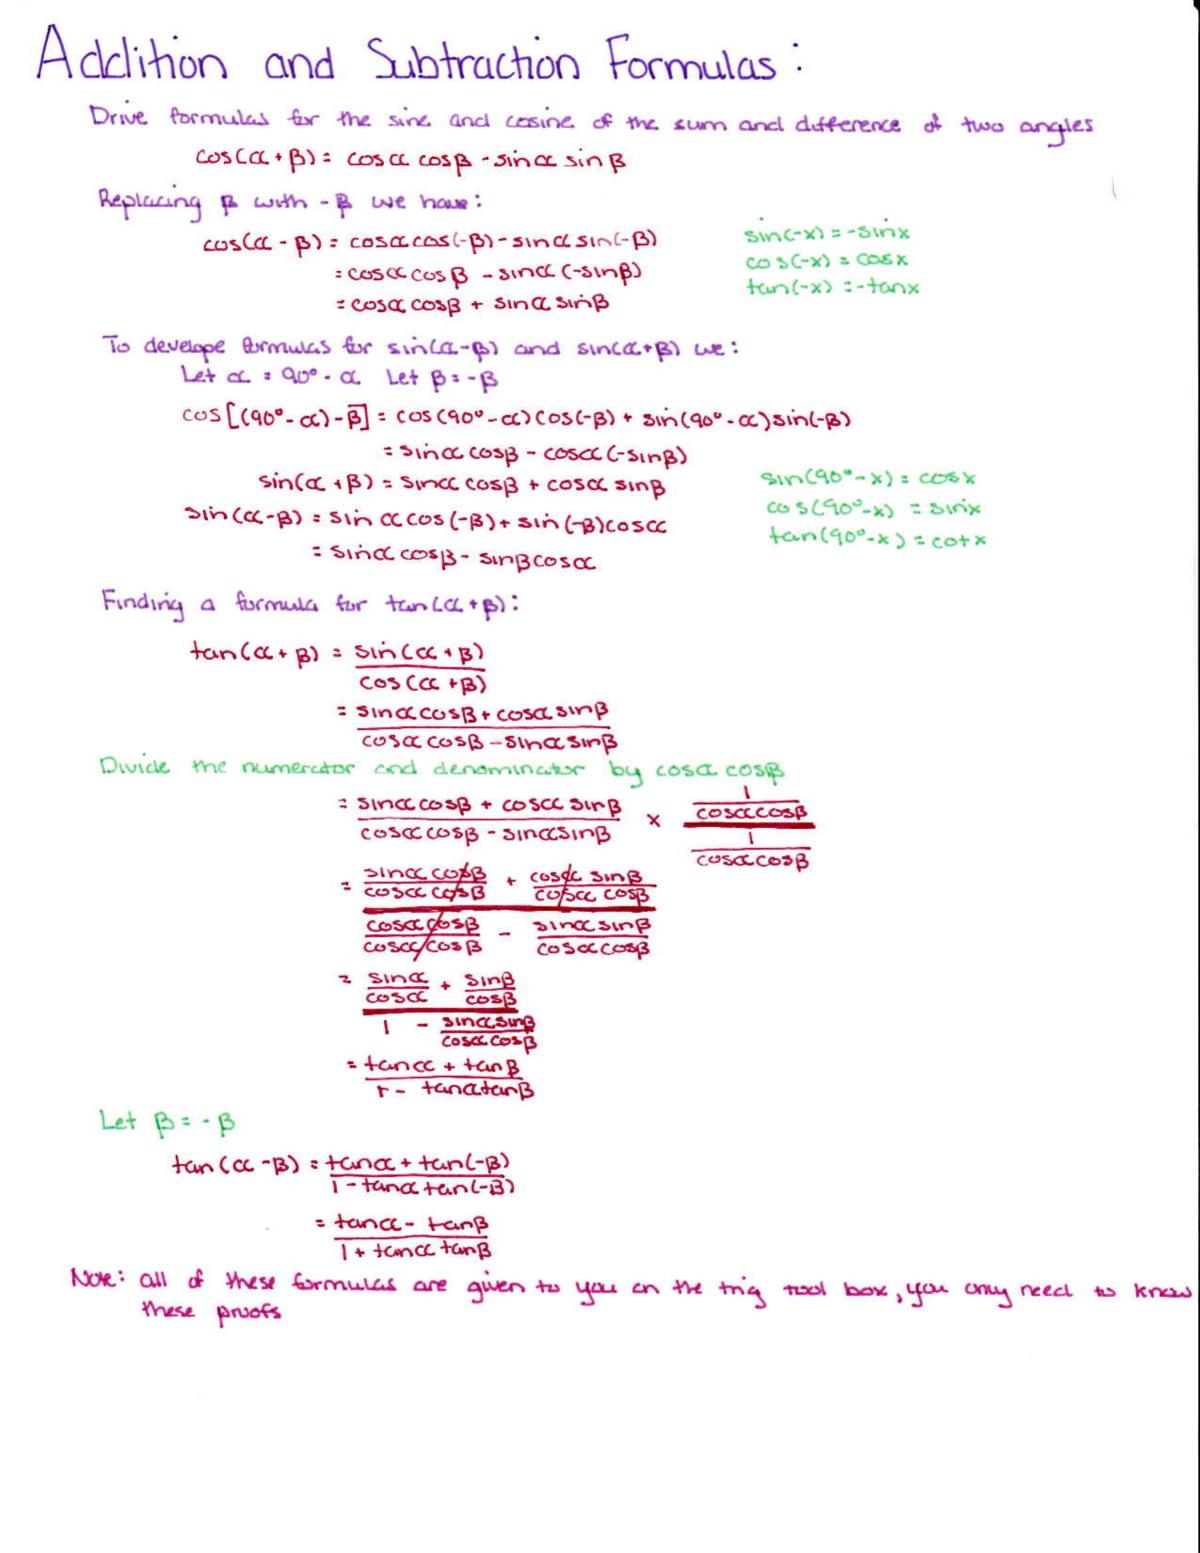 Addition and Subtraction Formulas:
Drive formulas for the sine and cosine of the sum and difference of two angles
cos(α + β) = cosα cosβ - sinα sin β
Replacing β with - β we have:
cos(α - β) = cosα cos(-β) - sinα sin(-β)
sin(-x) = -sinx
= cosα cos β - sinα (-sinβ)
cos(-x) = cosx
= cosα cosβ + sinα sinβ
tan(-x) = -tanx
To develope formulas for sin(α-β) and sin(α+β) we:
Let α = 90° - α Let β = -β
cos[(90° - α) - β] = cos(90° - α) cos(-β) + sin(90° - α) sin(-β)
= sinα cosβ - cosα (-sinβ)
sin(α + β) = sinα cosβ + cosα sinβ
sin(90° - x) = cosx
sin(α-β) = sin α cos(-β) + sin(-β)cosα
cos(90°-x) = sinx
= sinα cosβ - sinβcosα
tan(90°-x) = cotx
Finding a formula for tan(α+β):
tan(α + β) = sin(α + β)
cos(α + β)
= sinα cosβ + cosα sinβ
cosα cosβ - sinα sinβ
Divide the numerator and denominator by cosα cosβ
= sinα cosβ + cosα sinβ × 1
cosα cosβ - sinα sinβ cosα cosβ
1
cosα cosβ
= sinα cosβ + cosα sinβ
cosα cosβ cosα cosβ
cosα cosβ - sinα sinβ
cosα cosβ cosα cosβ
= sinα + sinβ
cosα cosβ
1 - sinα sinβ
cosα cosβ
= tanα + tanβ
1 - tanα tanβ
Let β = - β
tan(α - β) = tanα + tan(-β)
1 - tanα tan(-β)
= tanα - tanβ
1 + tanα tanβ
Note: all of these formulas are given to you on the trig tool box, you only need to know
these proofs